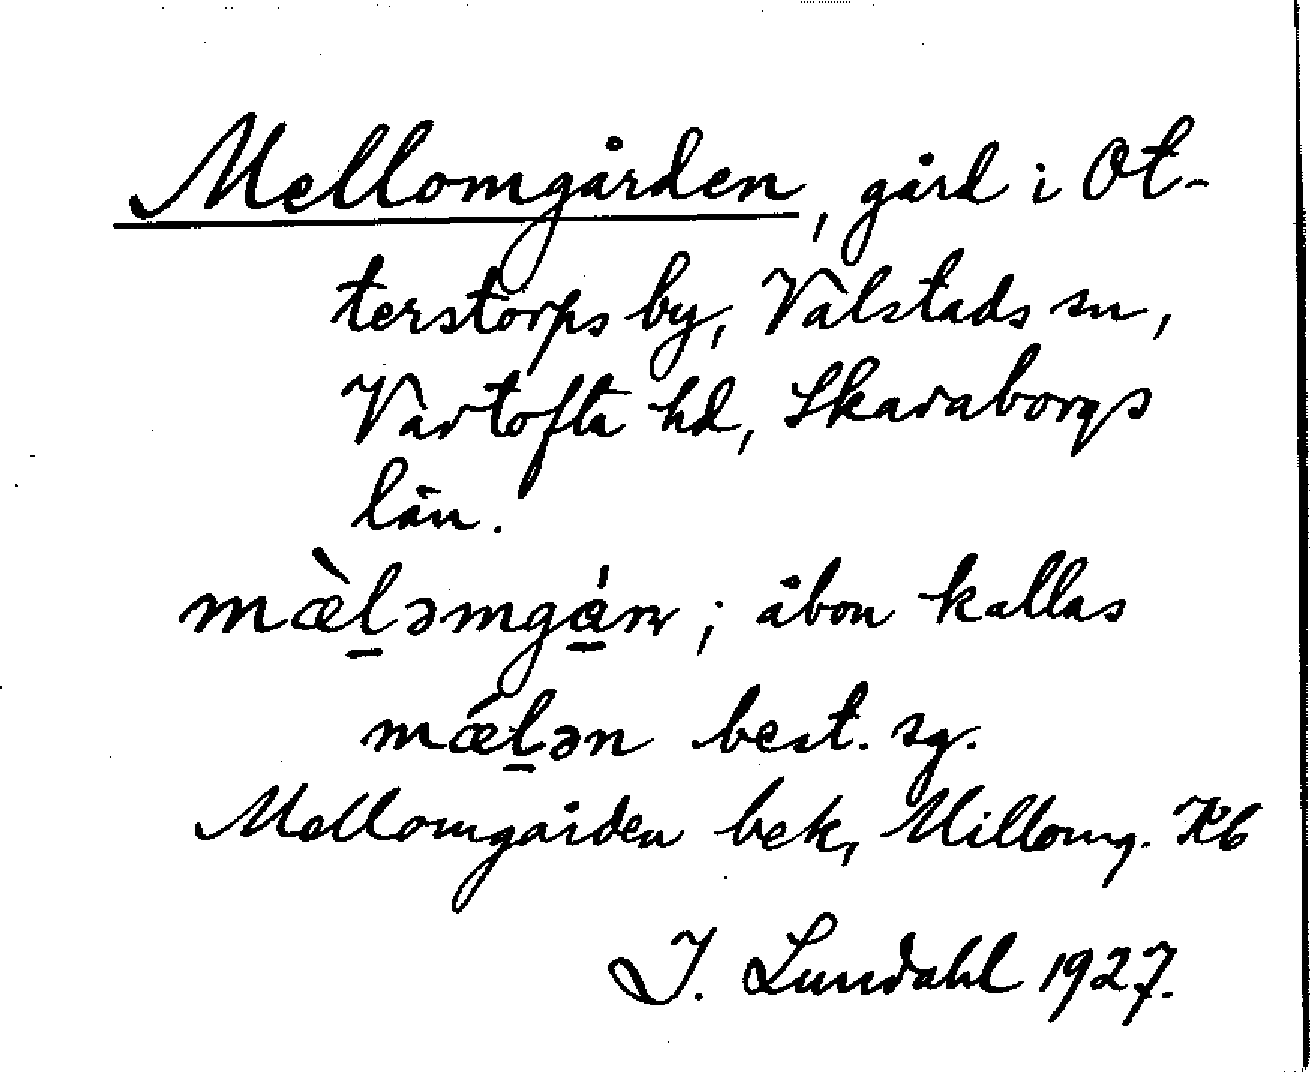 Mellomgården, gård i Ot-
terstorps by, Valstads sn,
Vartofta hd, Skaraborgs
län.
mæ̀l̠əmgá̠ṇ; åbon kallas
mǽl̠ən best. sg.
Mellomgården bek, Millomg. Kb
I. Lundahl 1927.